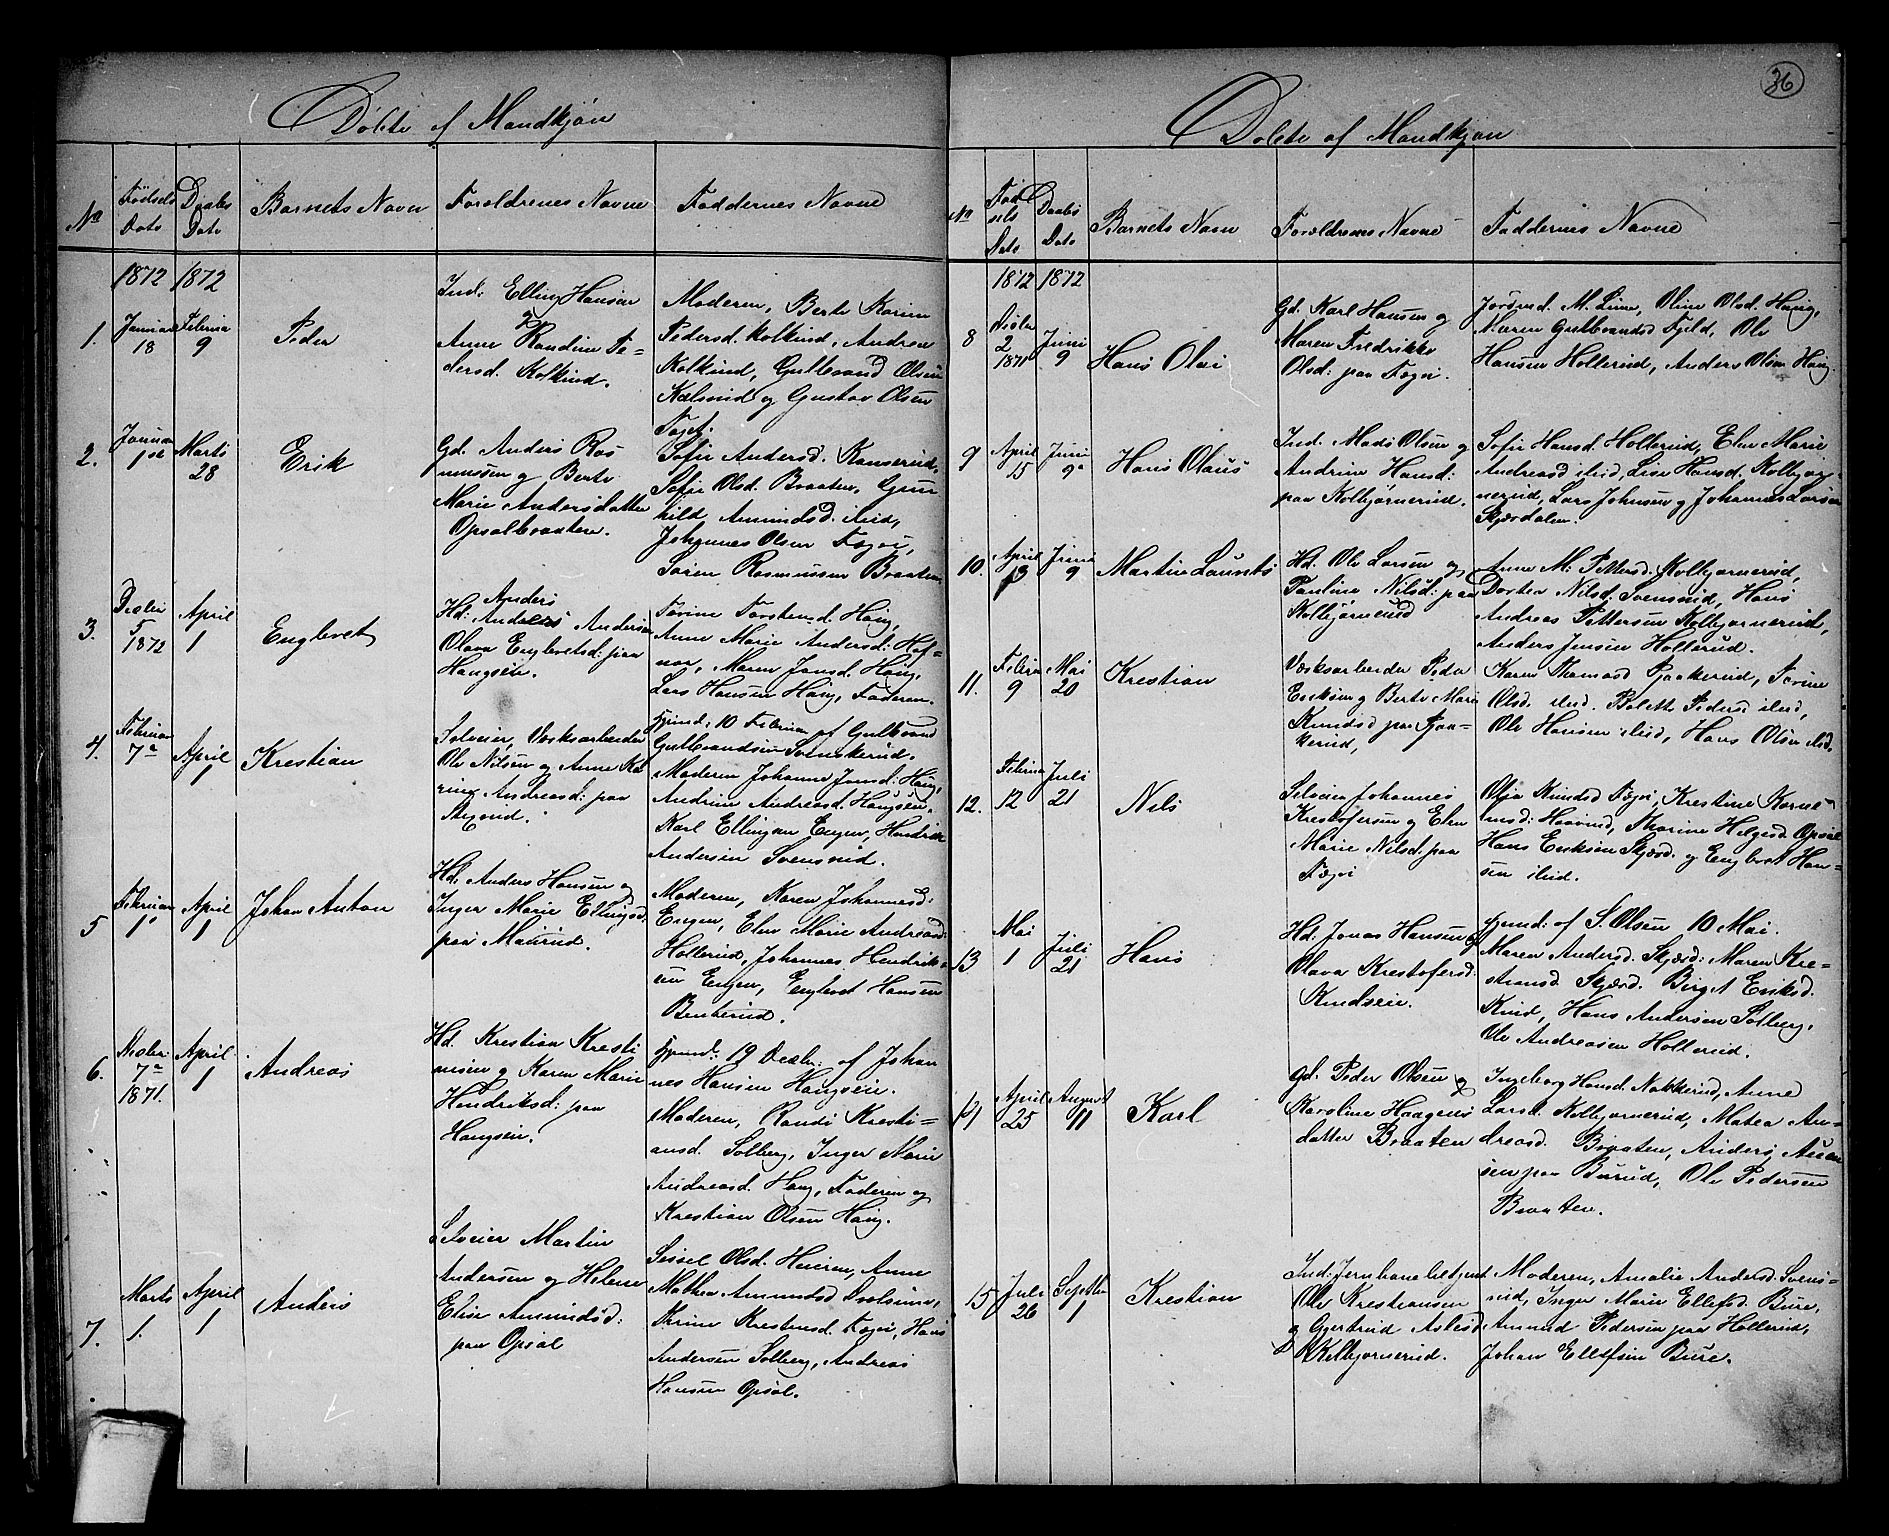 Döbte af Mandkjøn
No
Fødsels Dato
Daabs Dato
Barnets Navn
Foreldrenes Navne
Faddernes Navne
1872 1872
1. Januar 18
Februa 9
Peder
Ind: Elling Hansen
og
Anne Randine Pe-
dersd. Kolkind.
Moderen, Berte Karine
Pedersd. Kolkind, Andrea
Kolkind, Gulbrand Olsen
og Gustav Olsen
2. Januar 1st
Marts 28
Erik
Gd. Anders Ras
mussen og Berte
Marie Andersdatter
Opsalbraaten.
Sofie Andersd.
Sofie Olsd. Braaten, Gun
hild Amundsd. ibid,
Johannes Olsen Fægri,
Søren Rasmussen Braaten
3. Decbr 5 1872
April 1
Englbret
Anders
Hd: Andreas Andersen
Olava Englbretsd: paa
Haugseie.
Torine Torstensd. Haug,
Anne Marie Andersd: Haf-
nor, Maren Jansd. Haug,
Lars Hansen Haug, Faderen.
4. Februar 7de
April 1
Krestian
Selveier, Værksarbeider
Ole Nilsen og Anne Ka
rine Andreasd: paa
Hjemd: 10 Februar af Gulbrand
Gulbrandsen
Moderen Johanne Jansd: Haug,
Andrine Andreasd. Haugseie,
Karl Ellingsen Engen, Hendrik
Andersen Svensrud.
5 Februar 1
April 1
Johan Anton
Hd: Anders Hansen og
Inger Marie Ellingsd:
paa Maurud.
Moderen, Karen Johannesd:
Engen, Elen Marie Andreasd:
Hollerud, Johannes Hendrik-
sen Engen, Englbret Hansen
Benterud.
6. Decbr 7de 1871.
April 1
Andreas
Hd. Krestian Kresti
ansen og Karen Marie
Hendriksd: paa
Haugseie.
Hjemd: 19 Decbr: af Johan
nes Hansen Haugseie.
Moderen, Randi Kresti-
ansd. Solberg, Inger Marie
Andreasd. Haug, Faderen og
Krestian Olsen Haug.
7. Marts 1.
April 1
Anders
Selveier Martin
Andersen og Helene
Elise Amundsd:
paa Opsal
Sissel Olsd. Heieren, Anne
Mathea Amundsd
Karine Krestensd. Fægri, Hans
Andersen Solberg, Andreas
Hansen Opsal.
36
Döbte af Mandkjøn
No
Fød sels Dato
Daabs Dato
Barnets Navn
Forældrenes Navne
Faddernes Navne
1872 1872
8 Decbr 2 1871
Juni 9
Hans Olai
Gd. Karl Hansen og
Maren Fredrikke
Olsd: paa Fægri.
M. Line, Oline Olsd. Haug,
Maren Gulbrandsd Fjeld, Ole
Hansen Hollerud, Anders Olsen Haug.
9 April 15
Juni 9
Hans Olaus
Ind. Mads Olsen og
Andrine Hansd:
paa Kolbjørnerud.
Sofie Hansd. Hollerud, Elen Marie
Andreasd ibid, Lise Hansd. Kolbjør-
nerud, Lars Johnsen og Johannes Larsen
Skjærdalen.
10. April 13
Juni 9
Martin Laurits
Hd. Ole Larsen og
Pauline Nilsd: paa
Kolbjørnerud
Anne M. Pettersd. Kolbjørnerud,
Dortea Nilsd. Svensrud, Hans
Andreas Pettersen Kolbjørnerud,
Anders Jensen Hollerud.
11. Februa 9
Mai 20
Krestian
Værksarbeider Peder
Eriksen og Berte Marie
Knudsd paa Paa-
kerud,
Karen Paakerud, Torine
Olsd. ibid. Bolette Pedersd ibid,
Ole Hansen ibid, Hans Olsen ibid.
12. Februa 12
Juli 21
Nils
Selveier Johannes
Krestofersen og Elen
Marie Nilsd. paa
Fægri
Olea Knudsd Fægri, Krestine Korne-
liusd: Thorine Helgesd Opsal
Hans Eriksen Skjærd. og Englbret Han-
sen ibid.
13 Mai 1
Juli 21
Hans
Hd: Jonas Hansen og
Olava Krestofersd:
Rudseie.
Hjemd: af S. Olsen 10 Mai.
Maren Andersd. Skjærd: Maren Kre-
stiansd Skjærd. Birgit Eriksd.
Rud, Hans Andersen Solberg,
Ole Andreasen Hollerud.
14 April 25
August 11
Karl
Gd. Peder Olsen og
Karoline Haagens
datter Braaten
Ingeborg Hansd. Nakkerud, Anne
Larsd. Kolbjørnerud, Matea An-
dreasd. Braaten, Anders
sen paa Burud, Ole Pedersen
Braaten.
15 Juli 26
Septbr 1
Krestian
Ind: Jernbanebetjent
Ole Krestiansen
og Gjertrud Aslesd
Kolbjørnerud.
Moderen, Amalie Andersd. Svens-
rud, Inger Marie Ellefsd. Bure,
Amund Pedersen paa Hollerud,
Johan Ellefsen Bure.